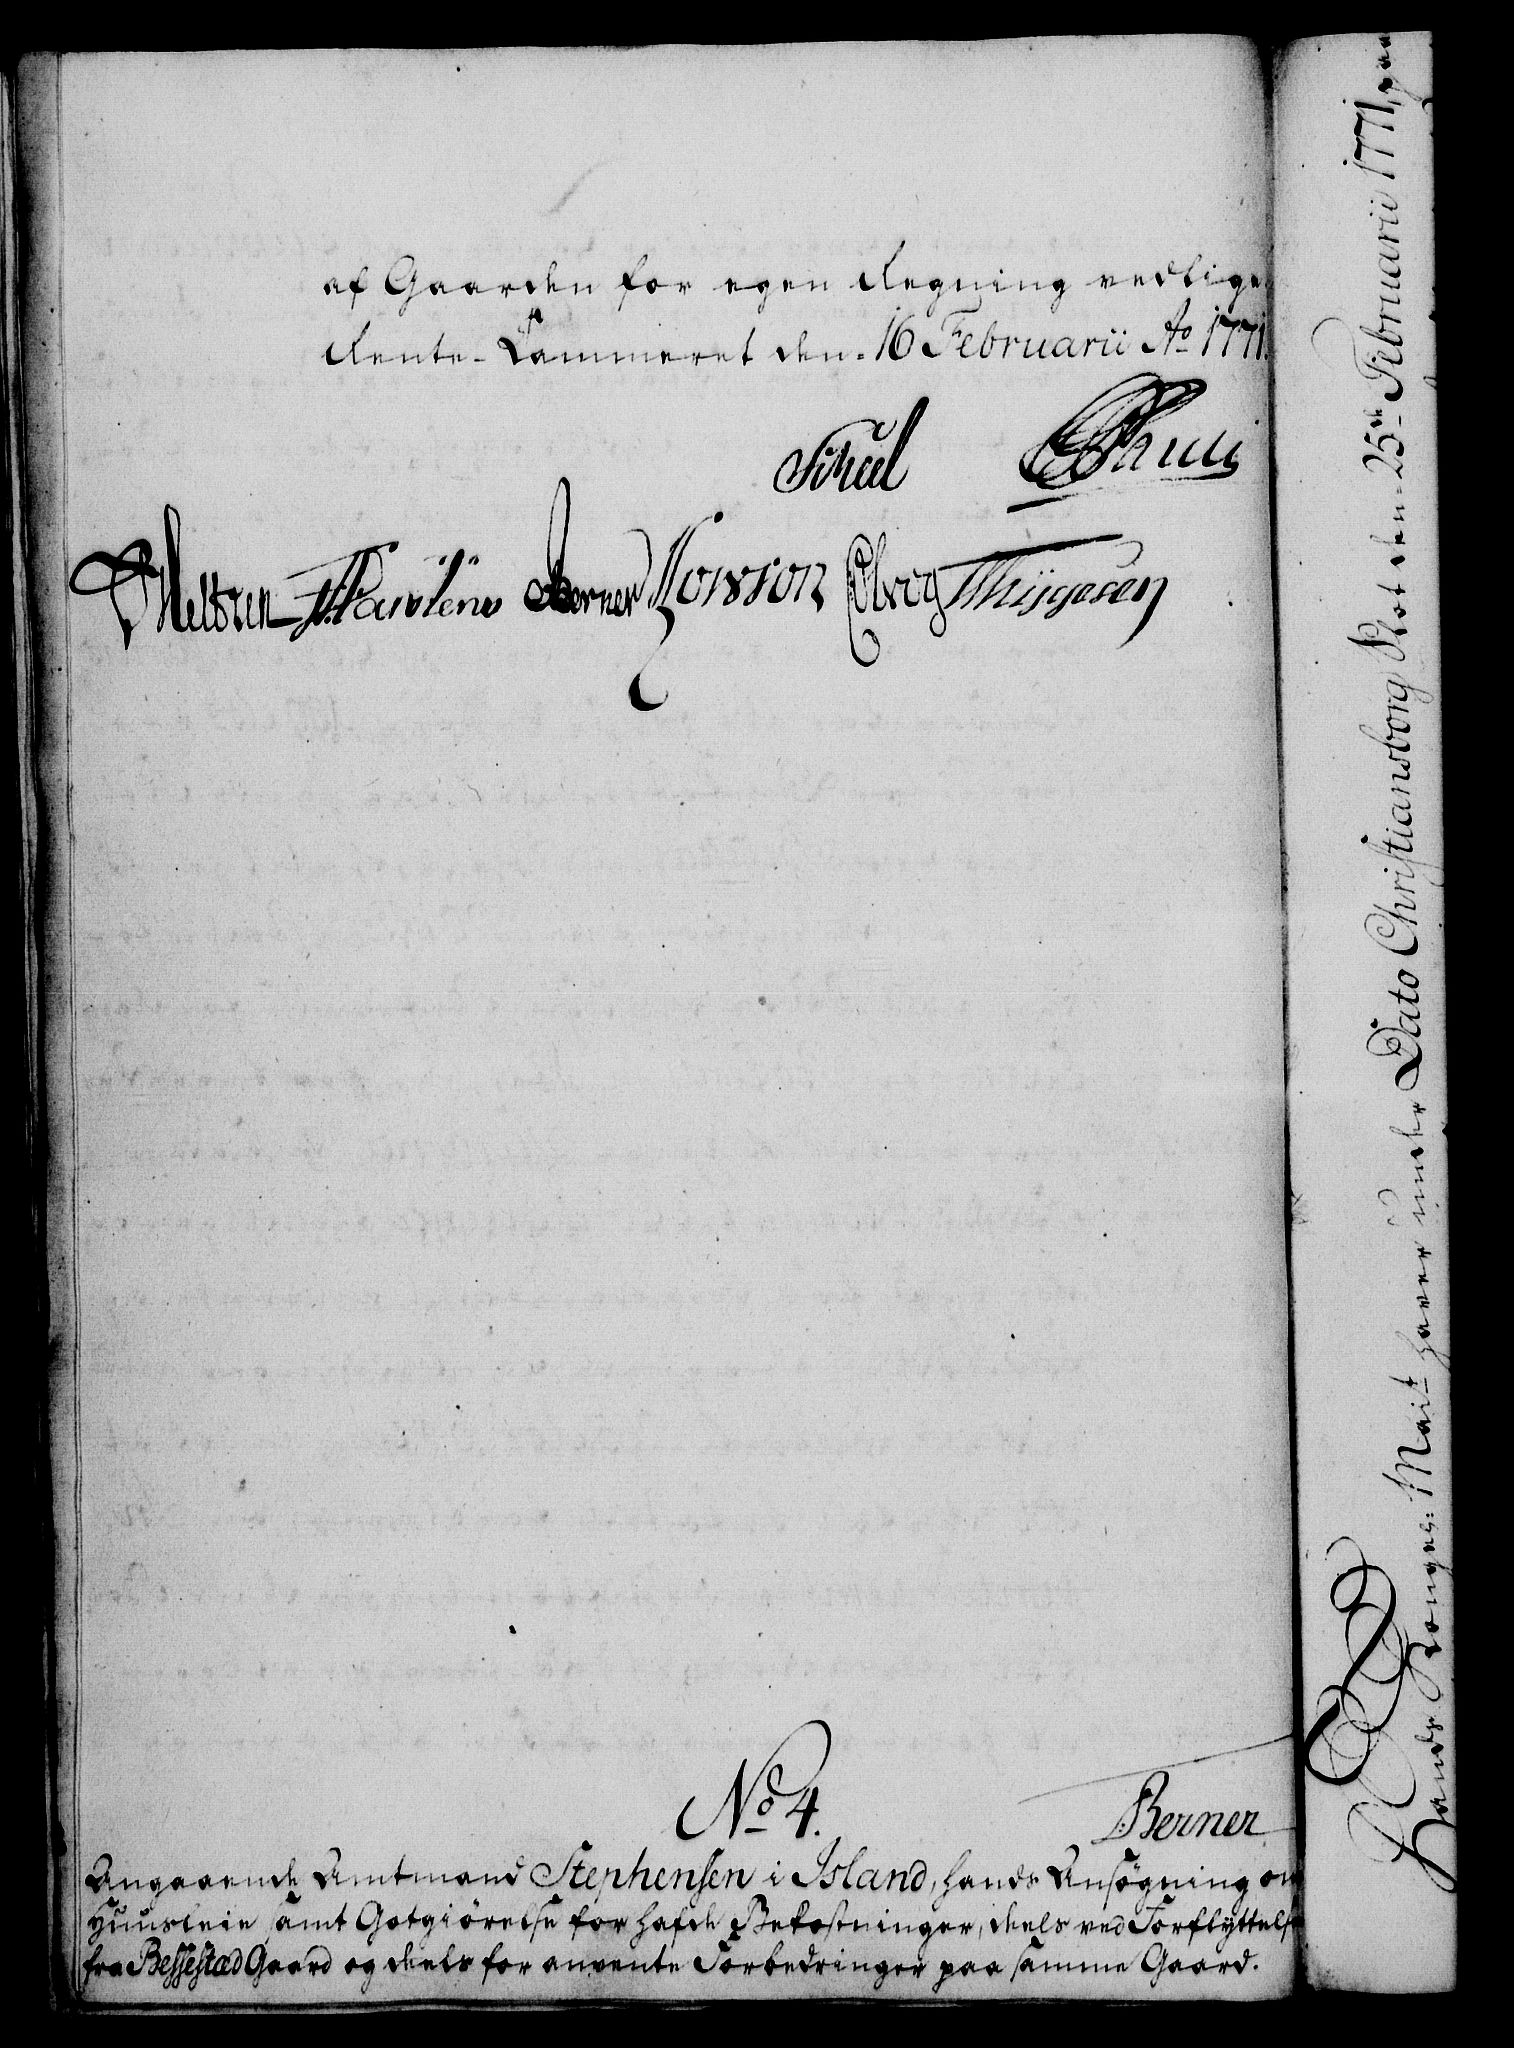 af Gaarden for egen Regning vedlige
Rente-Kammeret den. 16 Februarii Ao 1771.
Scheel
Meltzen Berner Thÿgesen
No 4. Berner
Angaaende Amtmand Stephensen i Island, hands Ansøgning om
Huusleie samt Gotgiørelse for hafde Bekostninger, deels ved Forflyttelse
fra Bessestæd Gaard og deels for anvente Forbedringer paa samme Gaard.
Hands Konges: Mait haver under Dato Christiansborg Slot den 25de Februarii 1771, paa